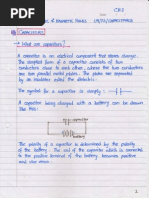 CH2
& MAGNETIC FIELDS LG
CAPACITORS
What are capacitors?
A capacitor is an electrical component that stores charge.
The simplest form of a capacitor consists of two
conductors close to each other, where the two conductors
are two parallel metal plates. The plates are separated
by an insulator known as the dielectric.
The symbol for a capacitor is simply:
A capacitor being charged with a battery can be drawn
like this:
The polarity of a capacitor is determined by the polarity
of the battery. The end of the capacitor which is connected
to the positive terminal of the battery becomes positive
and vice versa.
1